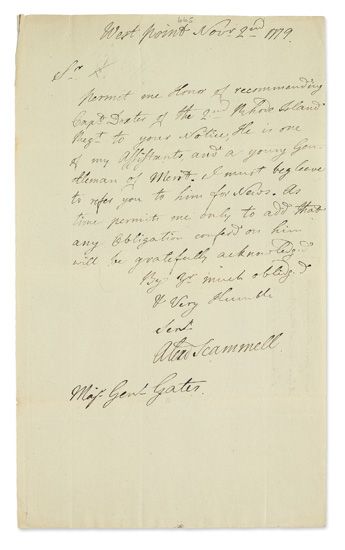 665
West point Novr. 2nd 1779.
Sr.
Permit me Honor of recommending
Capt. Dexter of the 2nd Rhode Island
Regt. to your Notice, He is one
of my Assistants, and a young Gen-
tleman of Merit. I must beg leave
to refer you to him for News. As
time permits me only to add that
any Obligation confer'd on him
will be gratefully acknowledg'd
By Yr. much oblidg'd
& Very Humble
Servt.
Alexr Scammell.
Majr. Genl. Gates.